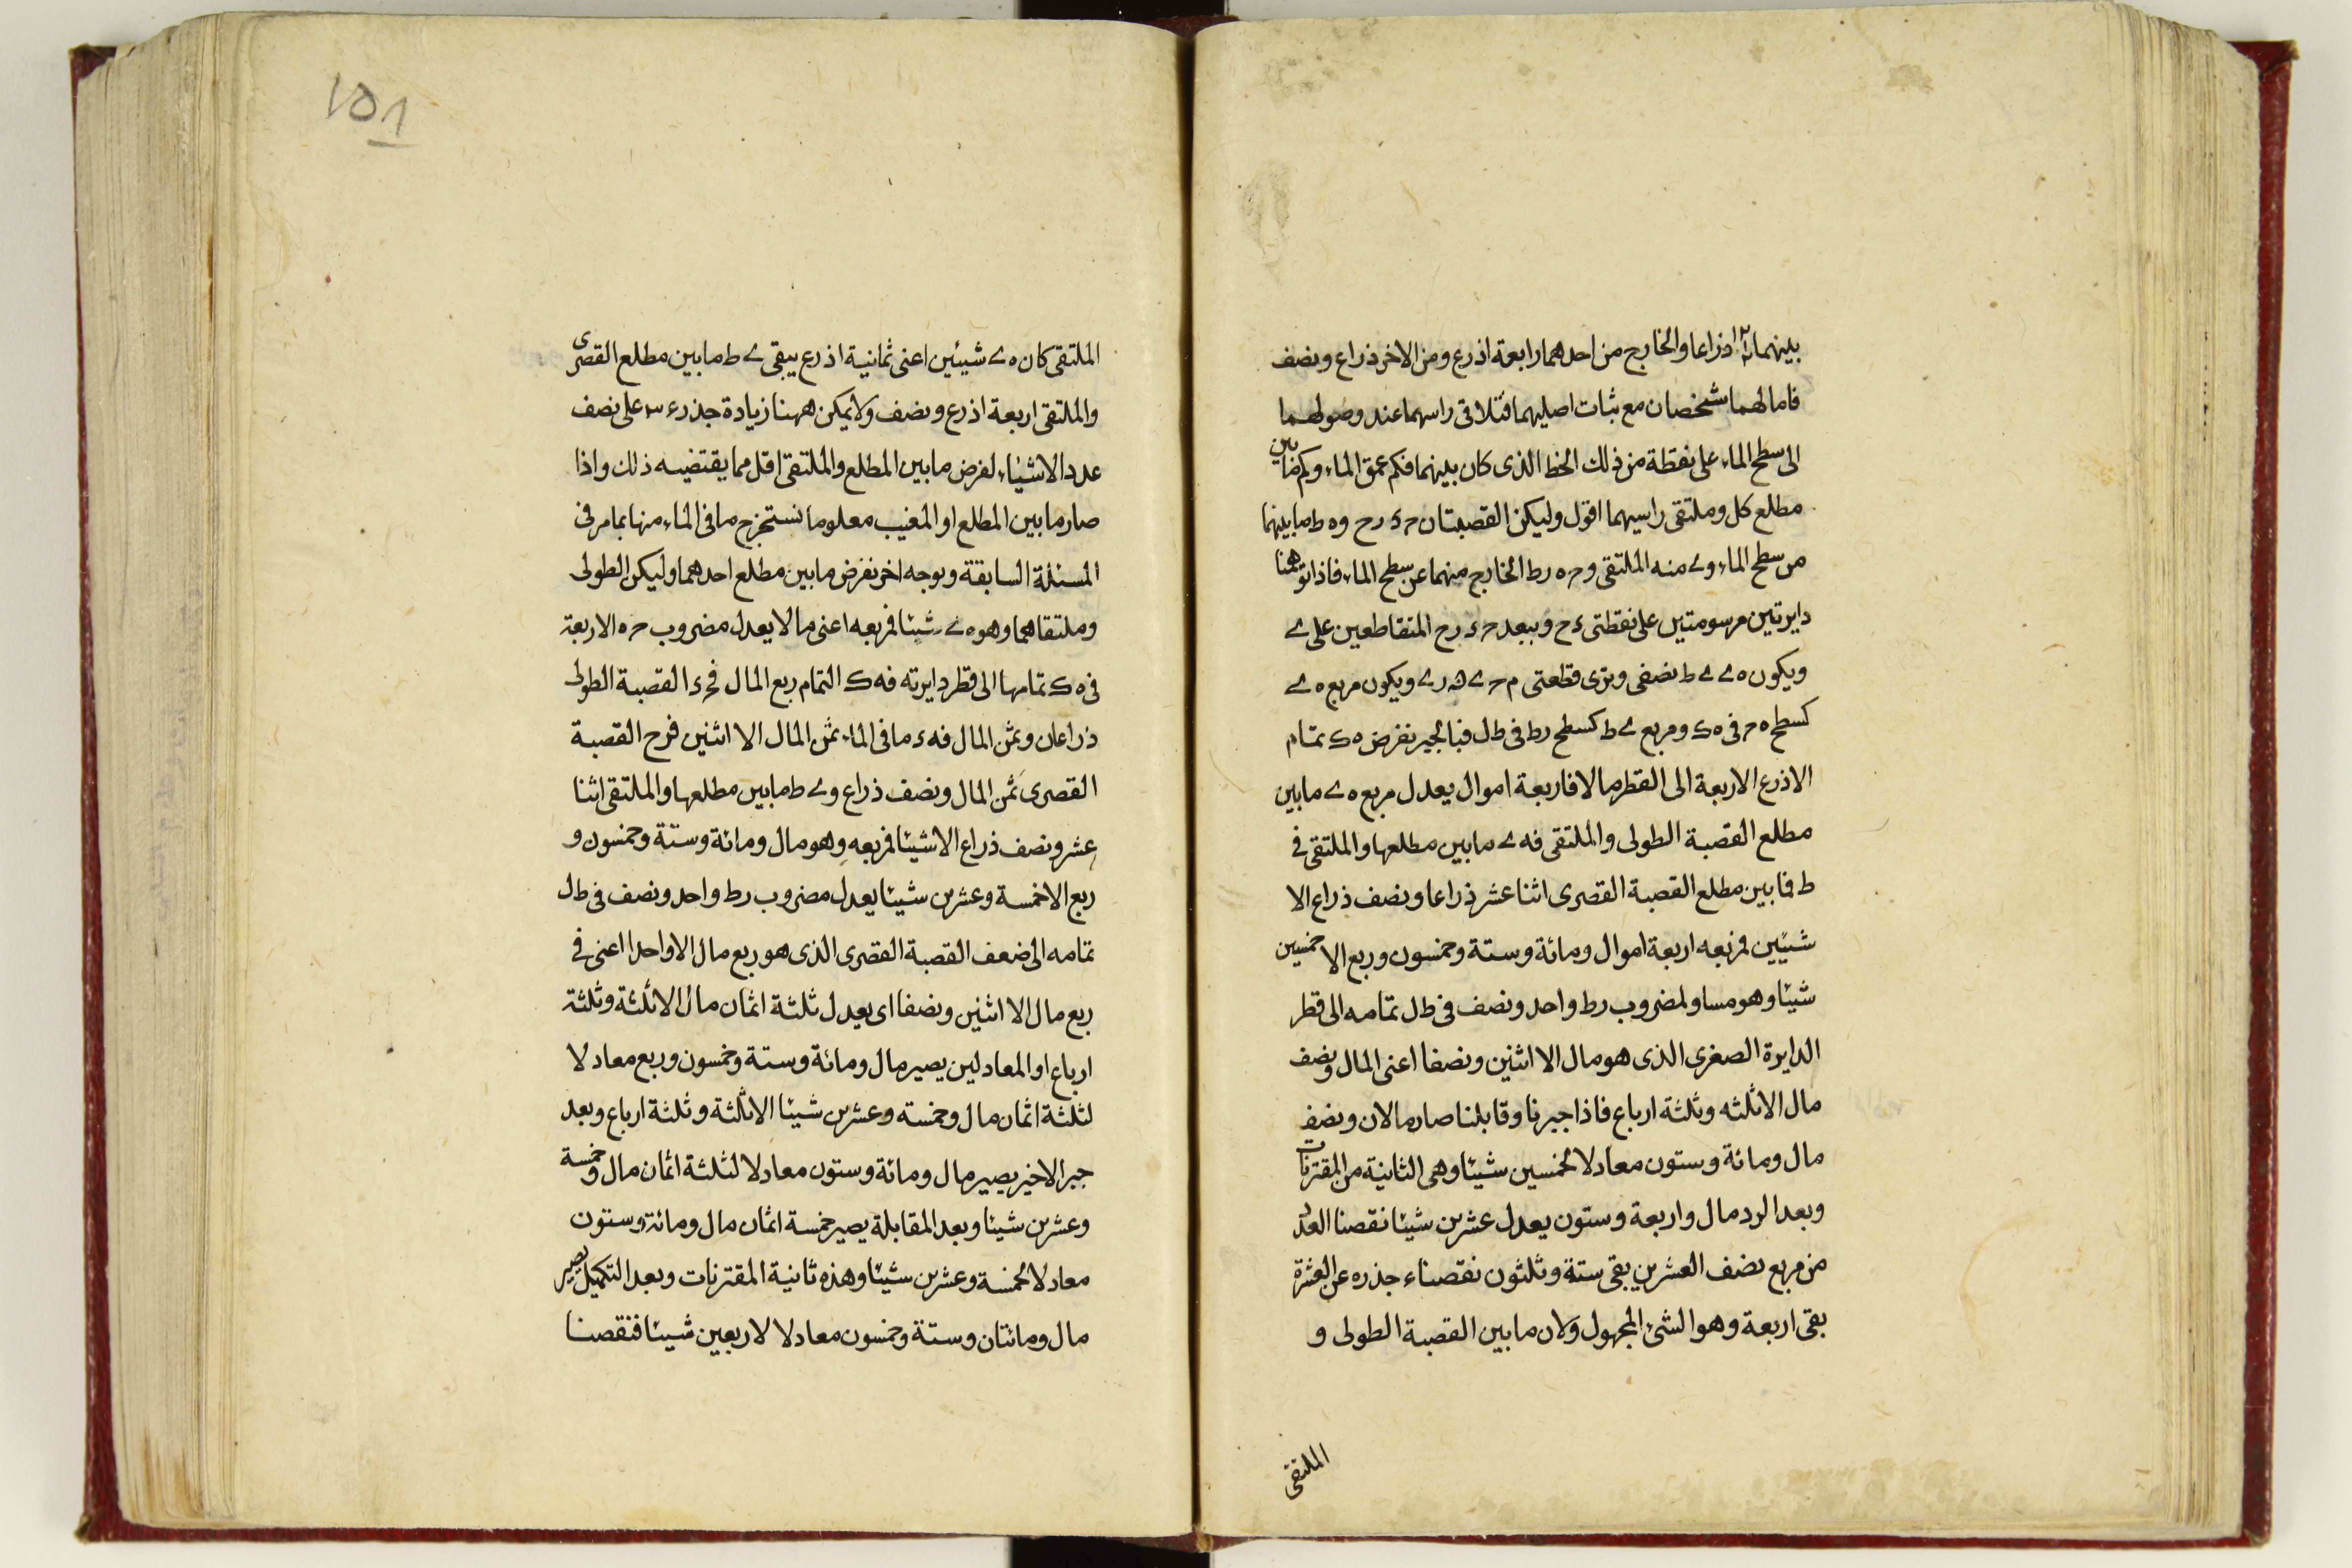 بينهما اذراعا والخارج من احدهما رابعة اذرع ومن الاخر ذراع ونصف
فامالهما شخصان مع ثبات اصليهما فتلاقى راسهما عند وصولهما
الى سطح الماء على نقطة من ذلك الخط الذى كان بينهما فكم عمق الماء وكم ما بين
مطلع كل وملتقى راسيهما اقول وليكن القصبتان حء رح وه ط ما بينهما
من سطح الماء وے منه الملتقى وحه رط الخارج منهما عن سطح الماء فاذا توهمنا
دايرتين مرسومتين على نقطتى ءح وببعد حء رح المتقاطعين على ے
ويكون ه ے ے ط نصفى وترى قطعتى م ح ے ه ر ے ويكون مربع ه ے
كسطح ه ح فى ه ك ومربع ے ط كسطح رط فى ط ل فبالجبر نفرض ه ك تمام
الاذرع الاربعة الى القطر مالا فاربعة اموال يعدل مربع ه ے ما بين
مطلع القصبة الطولى والملتقى فه ے ما بين مطلعها والملتقى فى
ط فما بين مطلع القصبة القصرى اثنا عشر ذراعا ونصف ذراع الا
شيئين فمربعه اربعة اموال ومائة وستة وخمسون وربع الا خمسين
شيئا وهو مساو لمضروب رط واحد ونصف فى ط ل تمامه الى قطر
الدايرة الصغرى الذى هو مال الا اثنين ونصفا اعنى المال ونصف
مال الا ثلثه وثلثة ارباع فاذا جبرنا وقابلنا صار مالان ونصف
مال ومائة وستون معادلا لخمسين شيئا وهى الثانية من المقترنات
وبعد الرد مال واربعة وستون يعدل عشرين شيئا نقصنا العدد
من مربع نصف العشرين بقى ستة وثلثون نقصناء جذره عن العشرة
بقى اربعة وهو الشئ المجهول ولان ما بين القصبة الطولى و
الملتقى
١٥١
الملتقى كان ه ے شيئين اعنى ثمانية اذرع يبقى ے ط ما بين مطلع القصرى
والملتقى اربعة اذرع ونصف ولا يمكن ههنا زيادة جذر على نصف
عدد الاشياء لفرض ما بين المطلع والملتقى اقل مما يقتضيه ذلك واذا
صار ما بين المطلع او المغيب معلوما نستخرج ما فى الماء منها بما مر فى
المسئلة السابقة وبوجه اخر نفرض ما بين مطلع احدهما وليكن الطولى
وملتقاهما وهو ه ے شيئا فمربعه اعنى مالا يعدل مضروب ح ه الاربعة
فى ه ك تمامها الى قطر دايرته فه ك التمام ربع المال فحء القصبة الطولى
ذراعان وثمن المال فه ء ما فى الماء ثمن المال الا اثنين فرح القصبة
القصرى ثمن المال ونصف ذراع وے ط ما بين مطلعها والملتقى اثنا
عشر ونصف ذراع الا شيئا فمربعه وهو مال ومائة وستة وخمسون و
ربع الا خمسة وعشرين شيئا يعدل مضروب رط واحد ونصف فى ط ل
تمامه الى ضعف القصبة القصرى الذى هو ربع مال الا واحدا اعنى فى
ربع مال الا اثنين ونصفا اى يعدل ثلثة اثمان مال الا ثلثة وثلثة
ارباع او المعادلين يصير مال ومائة وستة وخمسون وربع معادلا
لثلثة اثمان مال وخمسته وعشرين شيئا الا ثلثة وثلثة ارباع وبعد
جبر الاخير يصير مال ومائة وستون معادلا لثلثة اثمان مال وخمسة
وعشرين شيئا وبعد المقابلة يصير خمسة اثمان مال ومائة وستون
معادلا لخمسة وعشرين شيئا وهذه ثانية المقترنات وبعد التكميل يصير
مال ومائتان وستة وخمسون معادلا لاربعين شيئا فنقصنا